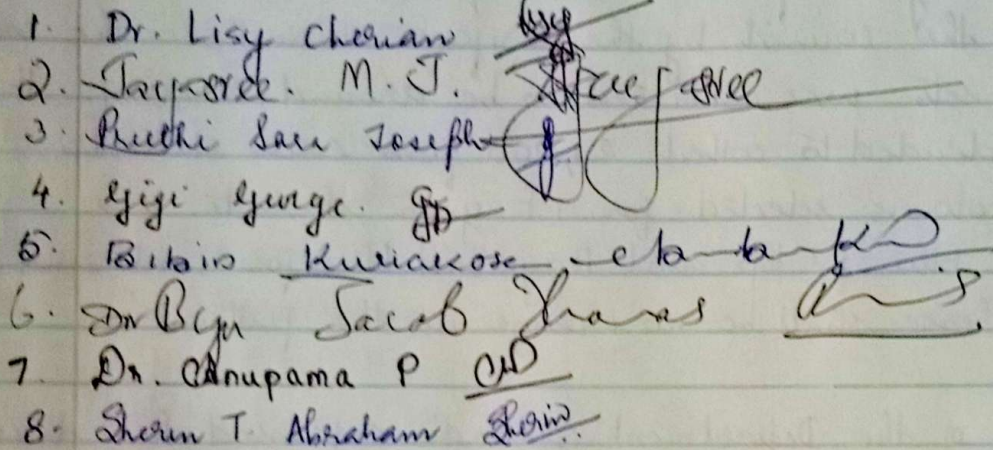 1. Dr. Lisy Cherian
2. Jayasree. M. J. Jayasree
3. Ruthi Sara Joseph
4. Gigi George.
5. Bibin Kuriakose
6. Dr Biju Jacob Thomas
7. Dr. Anupama P
8. Sherin T. Abraham Sherin